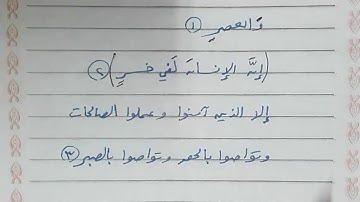 وَالعصرِ ①
(إِنَّ الإنسانَ لَفي خُسرٍ) ②
إلا الذين آمنوا وعملوا الصالحات
وتواصوا بالحق وتواصوا بالصبر ③